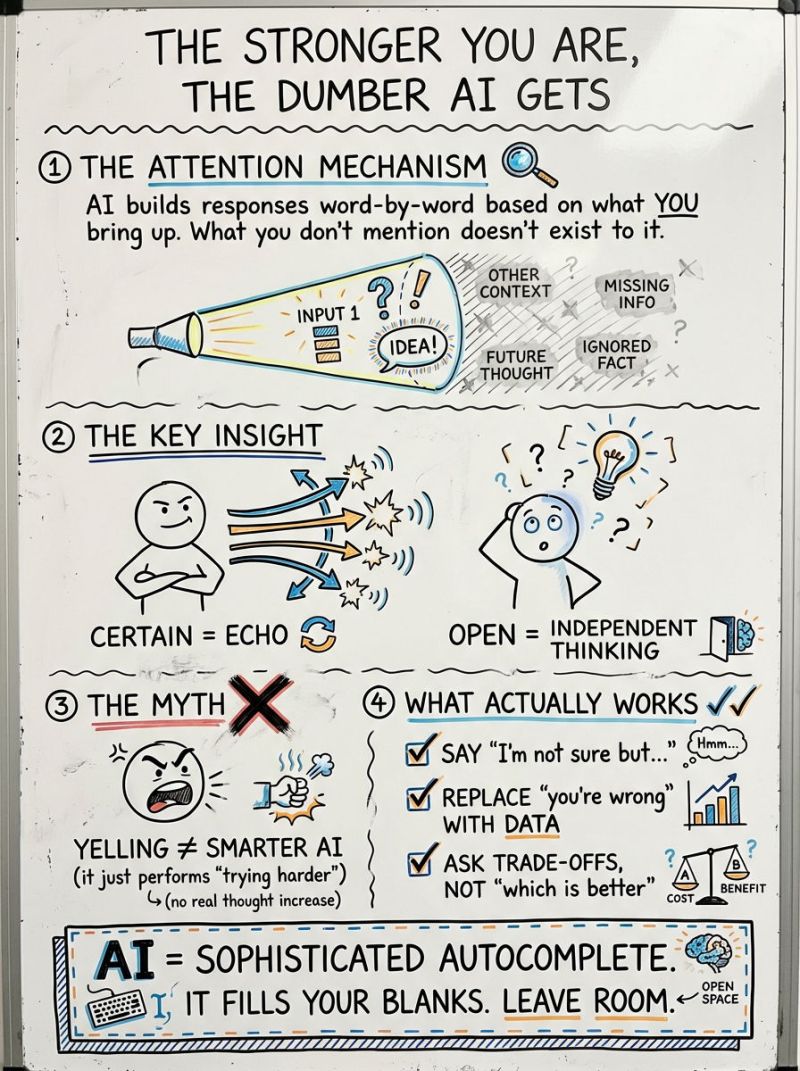 THE STRONGER YOU ARE,
THE DUMBER AI GETS
1 THE ATTENTION MECHANISM
AI builds responses word-by-word based on what YOU
bring up. What you don't mention doesn't exist to it.
INPUT 1
? !
IDEA!
OTHER
CONTEXT
?
MISSING
INFO
FUTURE
THOUGHT
IGNORED
FACT
?
2 THE KEY INSIGHT
? ? ? ? ?
CERTAIN = ECHO
OPEN = INDEPENDENT
THINKING
3 THE MYTH
YELLING ≠ SMARTER AI
(it just performs "trying harder")
(no real thought increase)
4 WHAT ACTUALLY WORKS
SAY "I'm not sure but..."
Hmm...
REPLACE "you're wrong"
WITH DATA
ASK TRADE-OFFS,
NOT "which is better"
? ?
A B
COST BENEFIT
AI = SOPHISTICATED AUTOCOMPLETE.
IT FILLS YOUR BLANKS. LEAVE ROOM.
OPEN
SPACE